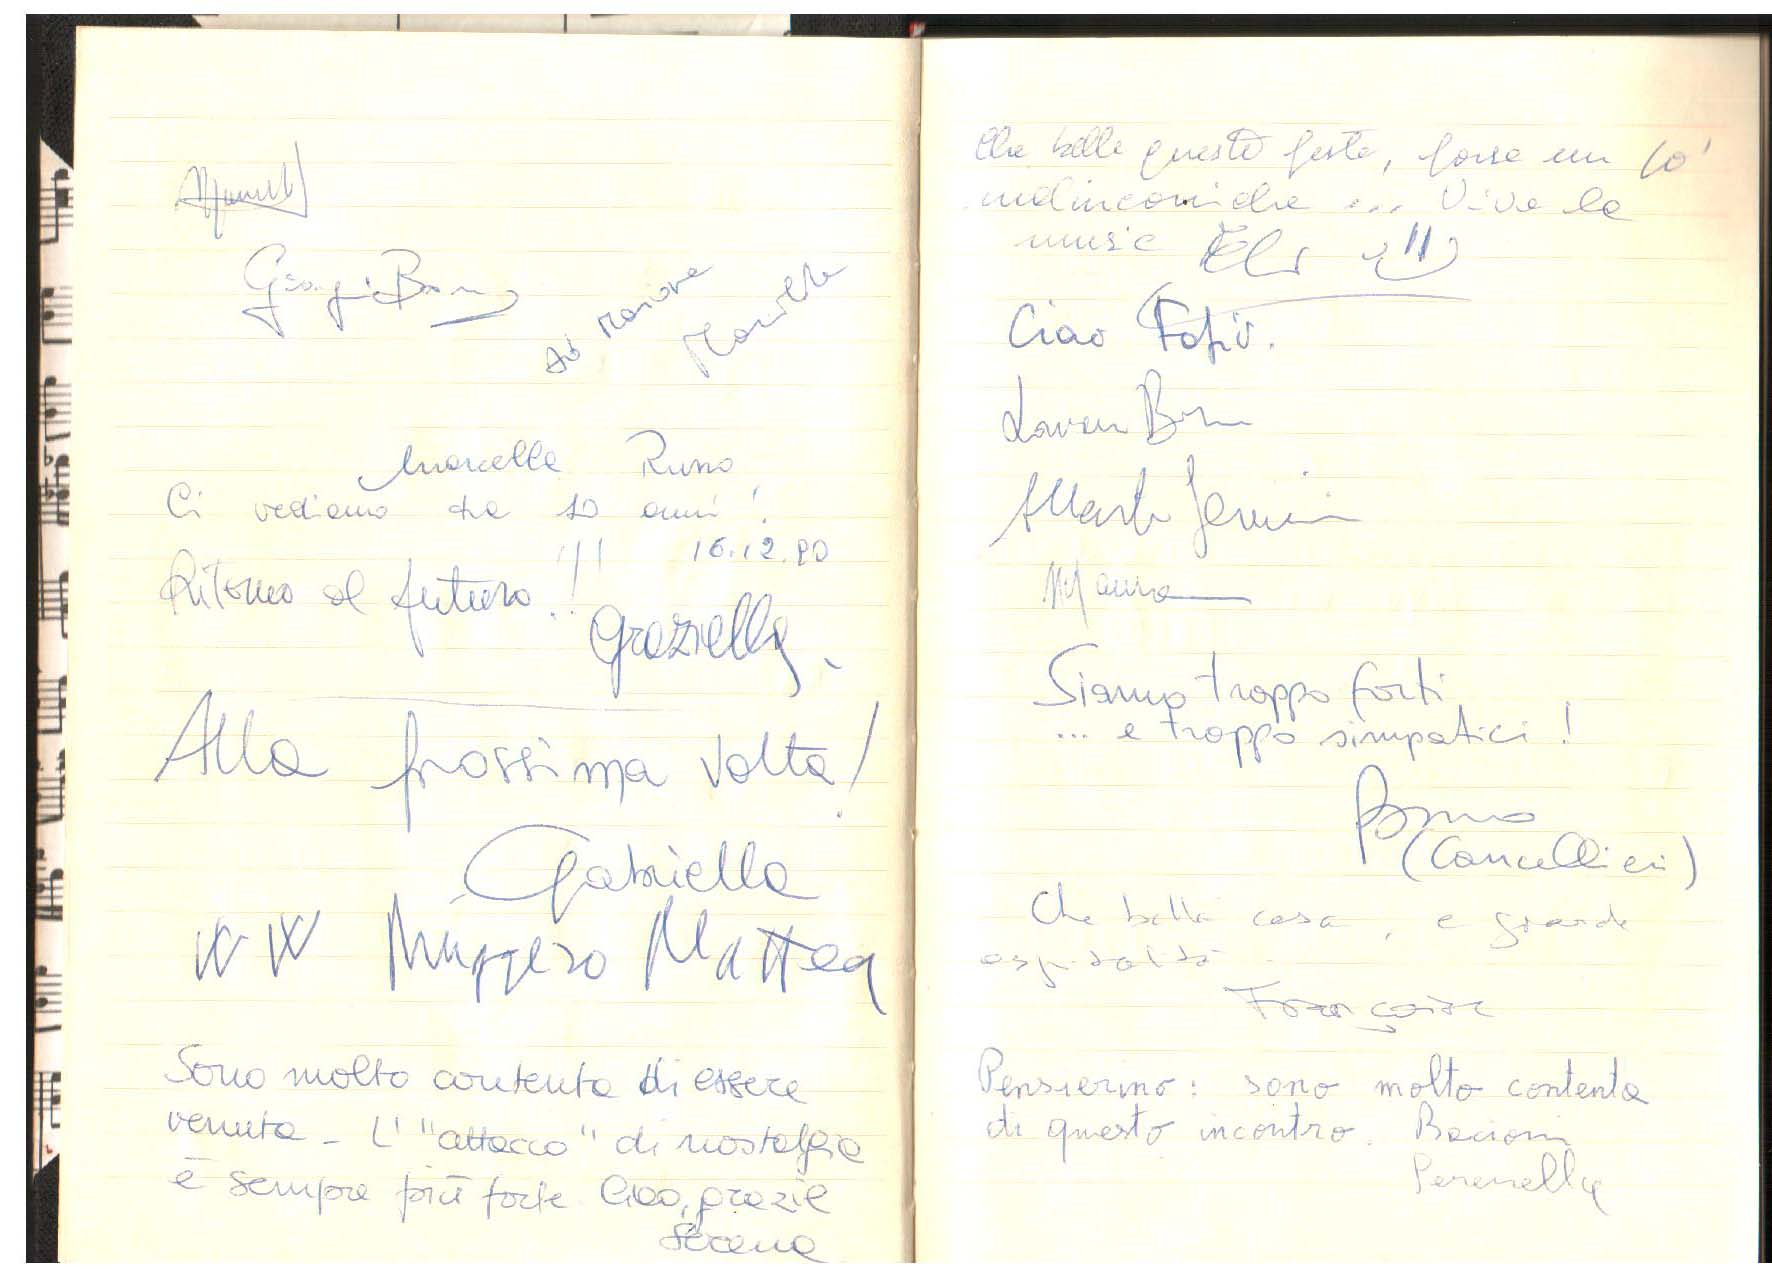 Ad Marione
Mariella
Marcella Russo
Ci vediamo tra 10 anni!
16.12.90
Ritorno al futuro!!!
Graziella
Alla prossima volta!
Gabriella
W W Ruggero Mattea
Sono molto contenta di essere
venuta - L' "attacco" di nostalgia
è sempre più forte. Ciao, grazie
Serena
Che bella questa festa, forse un po'
malinconica ... Viva la
music
Ciao
Alberto
Siamo troppo forti
... e troppo simpatici!
Bruno
(Cancellieri)
Che bella casa, e grande
ospitalità
Françoise
Pensierino: sono molto contenta
di questo incontro. Bacioni
Perenella